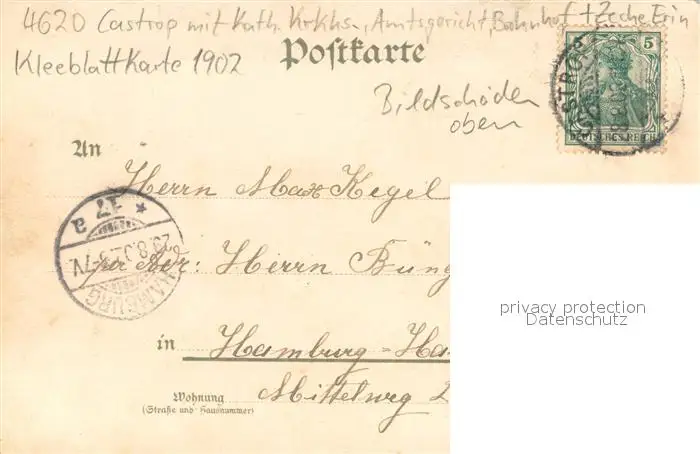 4620 Castrop mit Kath. Krkhs., Amtsgericht, Bahnhof + Zeche Erin
Postkarte
Kleeblattkarte 1902
Bildschäden
oben
5
DEUTSCHES REICH
CASTROP
An
Herrn Max Kegel
* 17 a
HAMBURG
per Adr: Herrn Büng
in Hamburg-Ha
Mittelweg 2
Wohnung
(Straße und Hausnummer)
privacy protection
Datenschutz